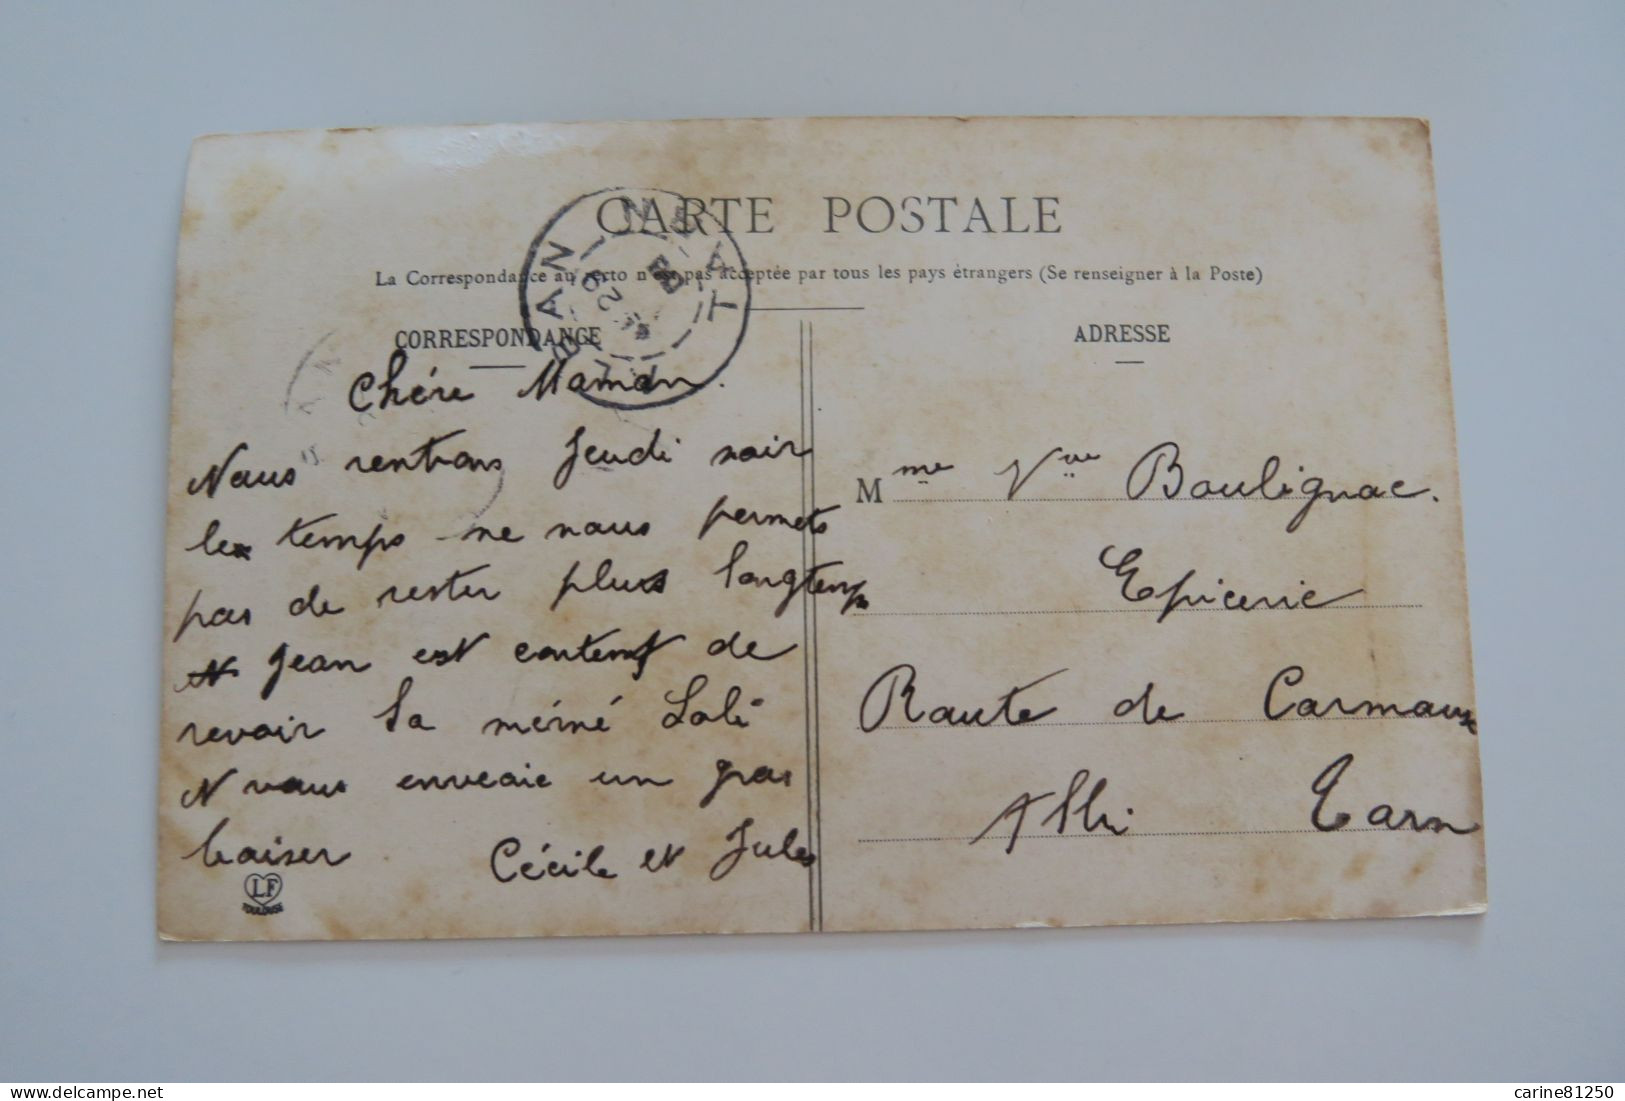 CARTE POSTALE
La Correspondance au recto n'est pas acceptée par tous les pays étrangers (Se renseigner à la Poste)
CORRESPONDANCE
Chére Maman.
Nous rentrons Jeudi soir
le temps ne nous permets
pas de rester plus longtemps
Jean est content de
revoir sa mémé Loli
vous enveoie un gros
baiser Cécile et Jules
LF
TOULOUSE
ADRESSE
Mme Vve Boulignac.
Epicerie
Route de Carmaux
Albi Tarn
delcampe.net
carine81250